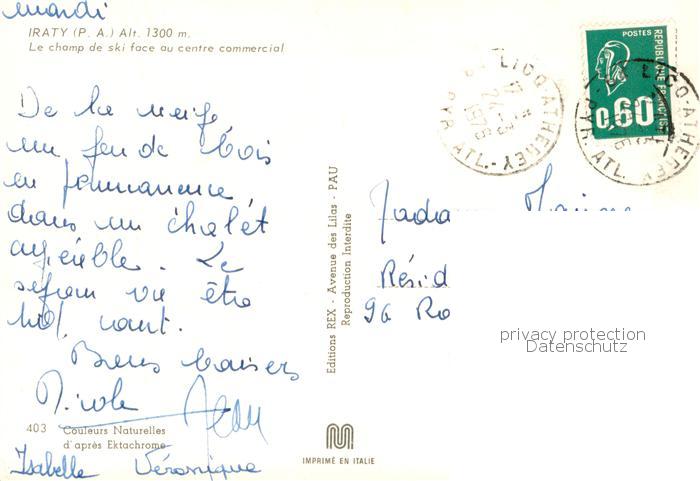 mardi
IRATY (P. A.) Alt. 1300 m.
Le champ de ski face au centre commercial
De la neige
un feu de bois
en permanence
dans un chalet
agréable. Le
séjour va être
vivifiant.
Bons baisers
Nicole Jean
Isabelle Véronique
403 Couleurs Naturelles
d'après Ektachrome
Editions REX - Avenue des Lilas - PAU
Reproduction Interdite
IMPRIMÉ EN ITALIE
POSTES
REPUBLIQUE FRANÇAISE
0,60
LICQ-ATHEREY
PYR. ATL.
LICQ-ATHEREY
PYR. ATL.
Résid
96 Ro
privacy protection
Datenschutz